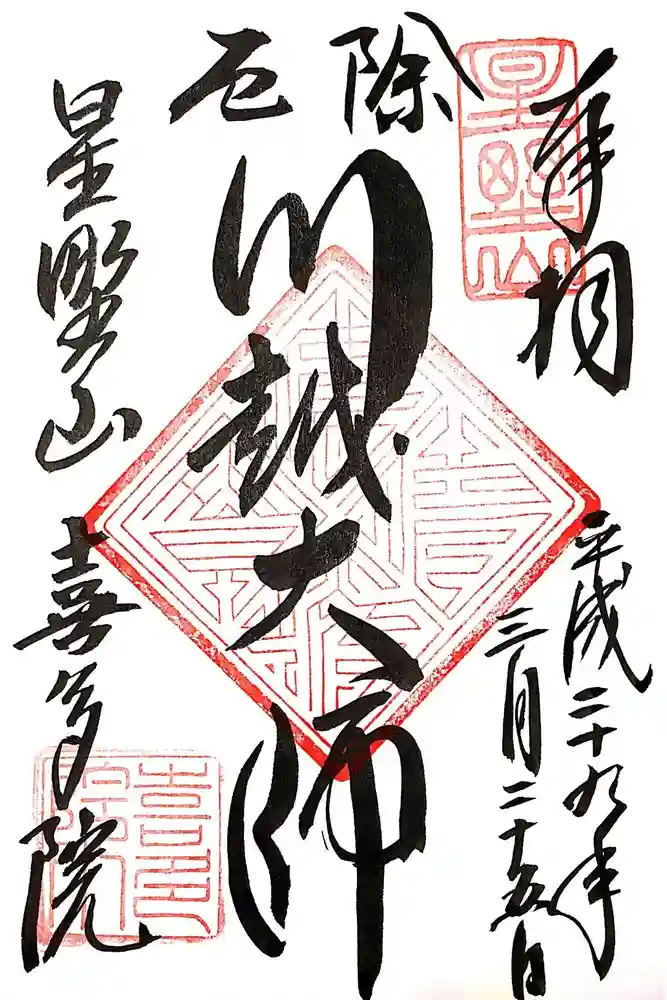 奉拝
平成二十九年
三月二十五日
除厄
川越大師
星野山
喜多院
星野山
喜多院